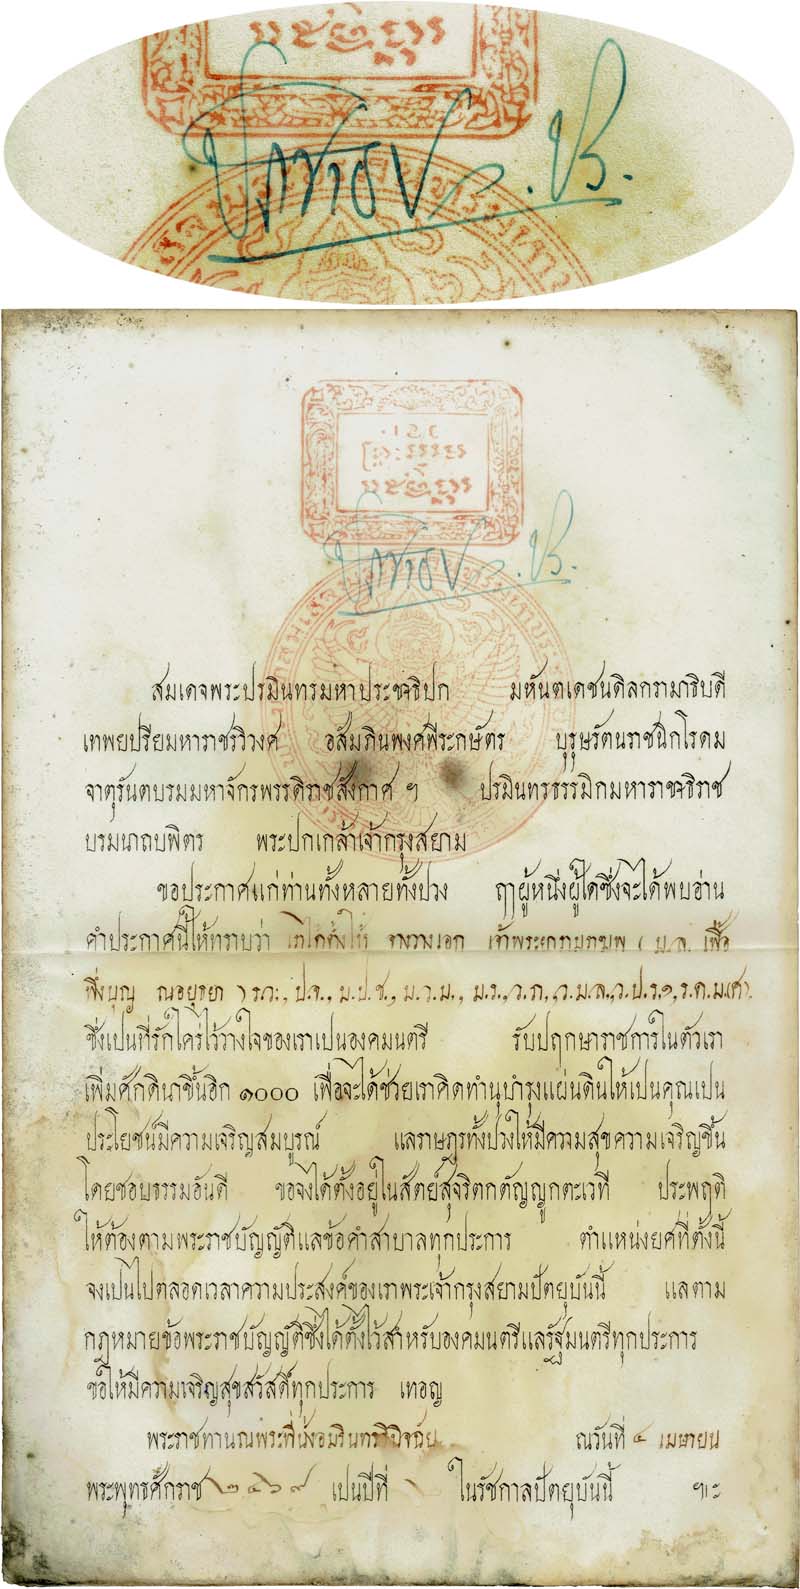 สมเดจพระปรมินทรมหาประชาธิปก มหันตเดชนดิลกรามาธิบดี
เทพยปรียมหาราชรวิวงศ อสัมภินพงศพีระกษัตร บุรุษรัตนราชนิกโรดม
จาตุรันตบรมมหาจักรพรรดิราชสังกาศ ฯ ปรมินทรธรรมิกมหาราชาธิราช
บรมนาถบพิตร พระปกเกล้าเจ้ากรุงสยาม
ขอประกาศแก่ท่านทั้งหลายทั้งปวง ฤๅผู้หนึ่งผู้ใดซึ่งจะได้พบอ่าน
คำประกาศนี้ให้ทราบว่า ได้ตั้งให้ จางวางเอก เจ้าพระยารามราฆพ ( ม.ล. เฟื้อ
พึ่งบุญ ณอยุธยา ) ร.ว:, ป.จ., ม.ป.ช., ม.ว.ม., ม.ร., ว.ภ., ว.ม.ล., ว.ป.ร.๑, ร.ด.ม.(ศ).
ซึ่งเปนที่รักใคร่ไว้วางใจของเราเปนองคมนตรี รับปฤกษาราชการในตัวเรา
เพิ่มศักดินาขึ้นอิก ๑๐๐๐ เพื่อจะได้ช่วยเราคิดทำนุบำรุงแผ่นดินให้เปนคุณเปน
ประโยชน์มีความเจริญสมบูรณ์ แลราษฎรทั้งปวงให้มีความสุขความเจริญขึ้น
โดยชอบธรรมอันดี ขอจงได้ตั้งอยู่ในสัตย์สุจริตกตัญญูกตะเวที ประพฤติ
ให้ต้องตามพระราชบัญญัติแลข้อคำสาบาลทุกประการ ตำแหน่งยศที่ตั้งนี้
จงเปนไปตลอดเวลาความประสงค์ของเราพระเจ้ากรุงสยามปัตยุบันนี้ แลตาม
กฎหมายข้อพระราชบัญญัติซึ่งได้ตั้งไว้สำหรับองคมนตรีแลรัฐมนตรีทุกประการ
ขอให้มีความเจริญสุขสวัสดิ์ทุกประการ เทอญ
พระราชทานณพระที่นั่งอมรินทรวินิจฉัย ณวันที่ ๔ เมษายน
พระพุทธศักราช ๒๔๖๙ เปนปีที่ ในรัชกาลปัตยุบันนี้ ฯะ